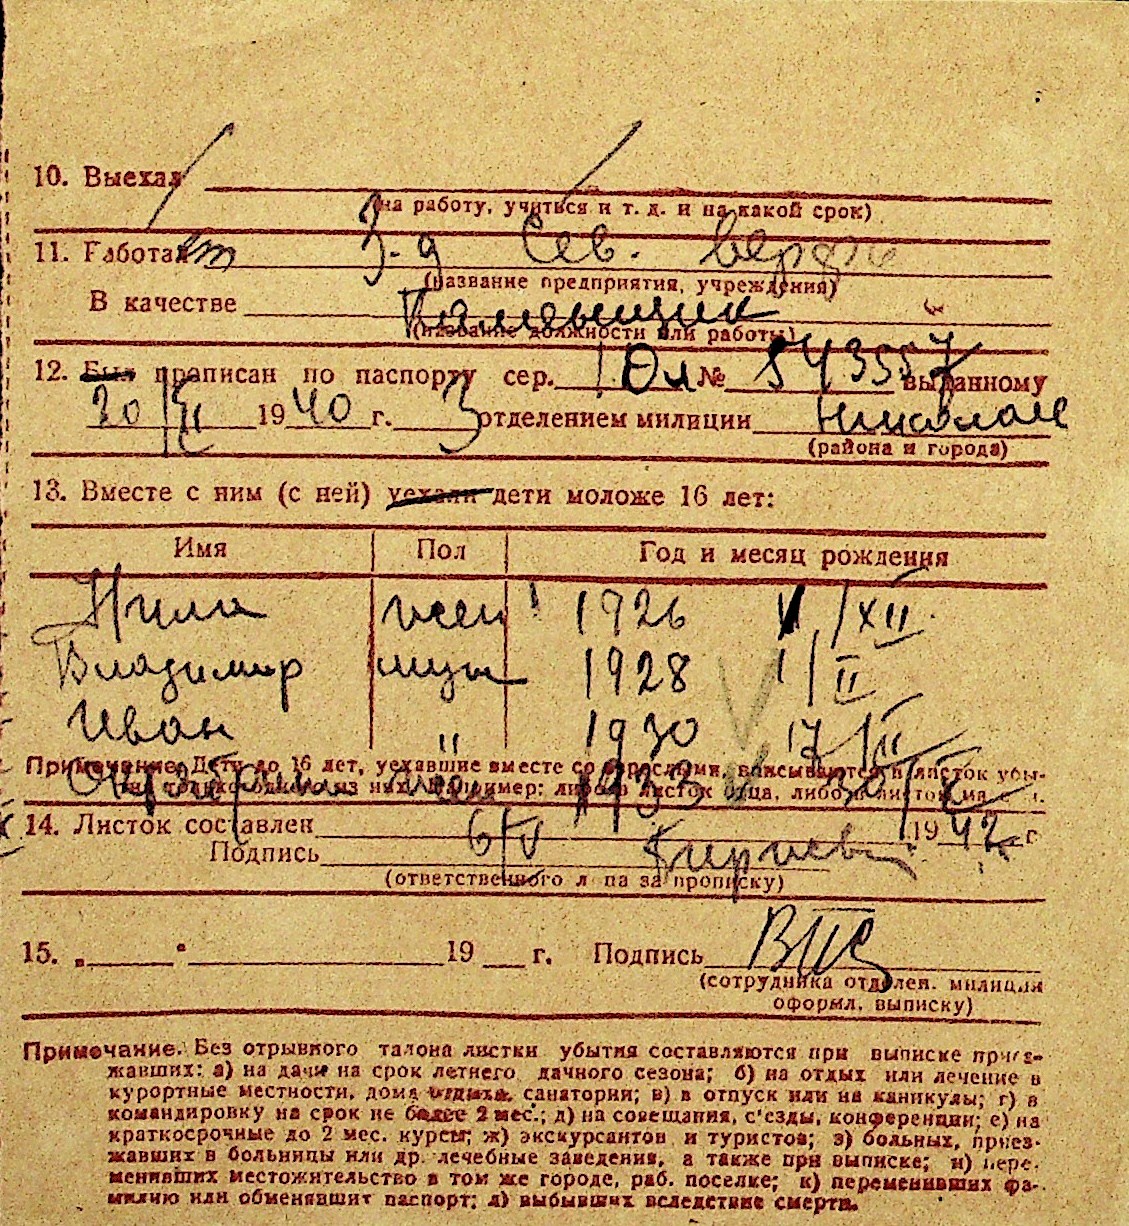 10. Выехал
(на работу, учиться и т. д. и на какой срок)
11. Работает З-д Сев. верфь
(название предприятия, учреждения)
В качестве
(название должности или работы)
12. Был прописан по паспорту сер. № 543557 выданному
20/II 1940 г. 3 отделением милиции Николаев
(района и города)
13. Вместе с ним (с ней) уехали дети моложе 16 лет:
Имя Пол Год и месяц рождения
Нила жен 1926 /XII
Владимир муж 1928 1/II
Иван " 1930 17/II
Примечание: Дети до 16 лет, уехавшие вместе со взрослыми, вписываются в листок убы-
тия только одного из них, например: либо в листок отца, либо в листок ма
жен 1933
14. Листок составлен 6/IV 1942 г.
Подпись
(ответственного лица за прописку)
15. „ “ 19 г. Подпись
(сотрудника отделен. милиции
оформл. выписку)
Примечание. Без отрывного талона листки убытия составляются при выписке приез-
жавших: а) на дачи на срок летнего дачного сезона; б) на отдых или лечение в
курортные местности, дома отдыха, санатории; в) в отпуск или на каникулы; г) в
командировку на срок не более 2 мес.; д) на совещания, с'езды, конференции; е) на
краткосрочные до 2 мес. курсы; ж) экскурсантов и туристов; з) больных, приез-
жавших в больницы или др. лечебные заведения, а также при выписке; и) пере-
менивших местожительство в том же городе, раб. поселке; к) переменивших фа-
милию или обменявшит паспорт; л) выбывших вследствие смерти.